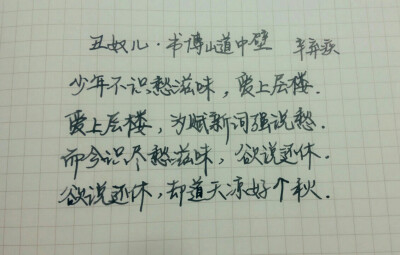 丑奴儿·书博山道中壁 辛弃疾
少年不识愁滋味，爱上层楼.
爱上层楼，为赋新词强说愁.
而今识尽愁滋味，欲说还休.
欲说还休，却道天凉好个秋.